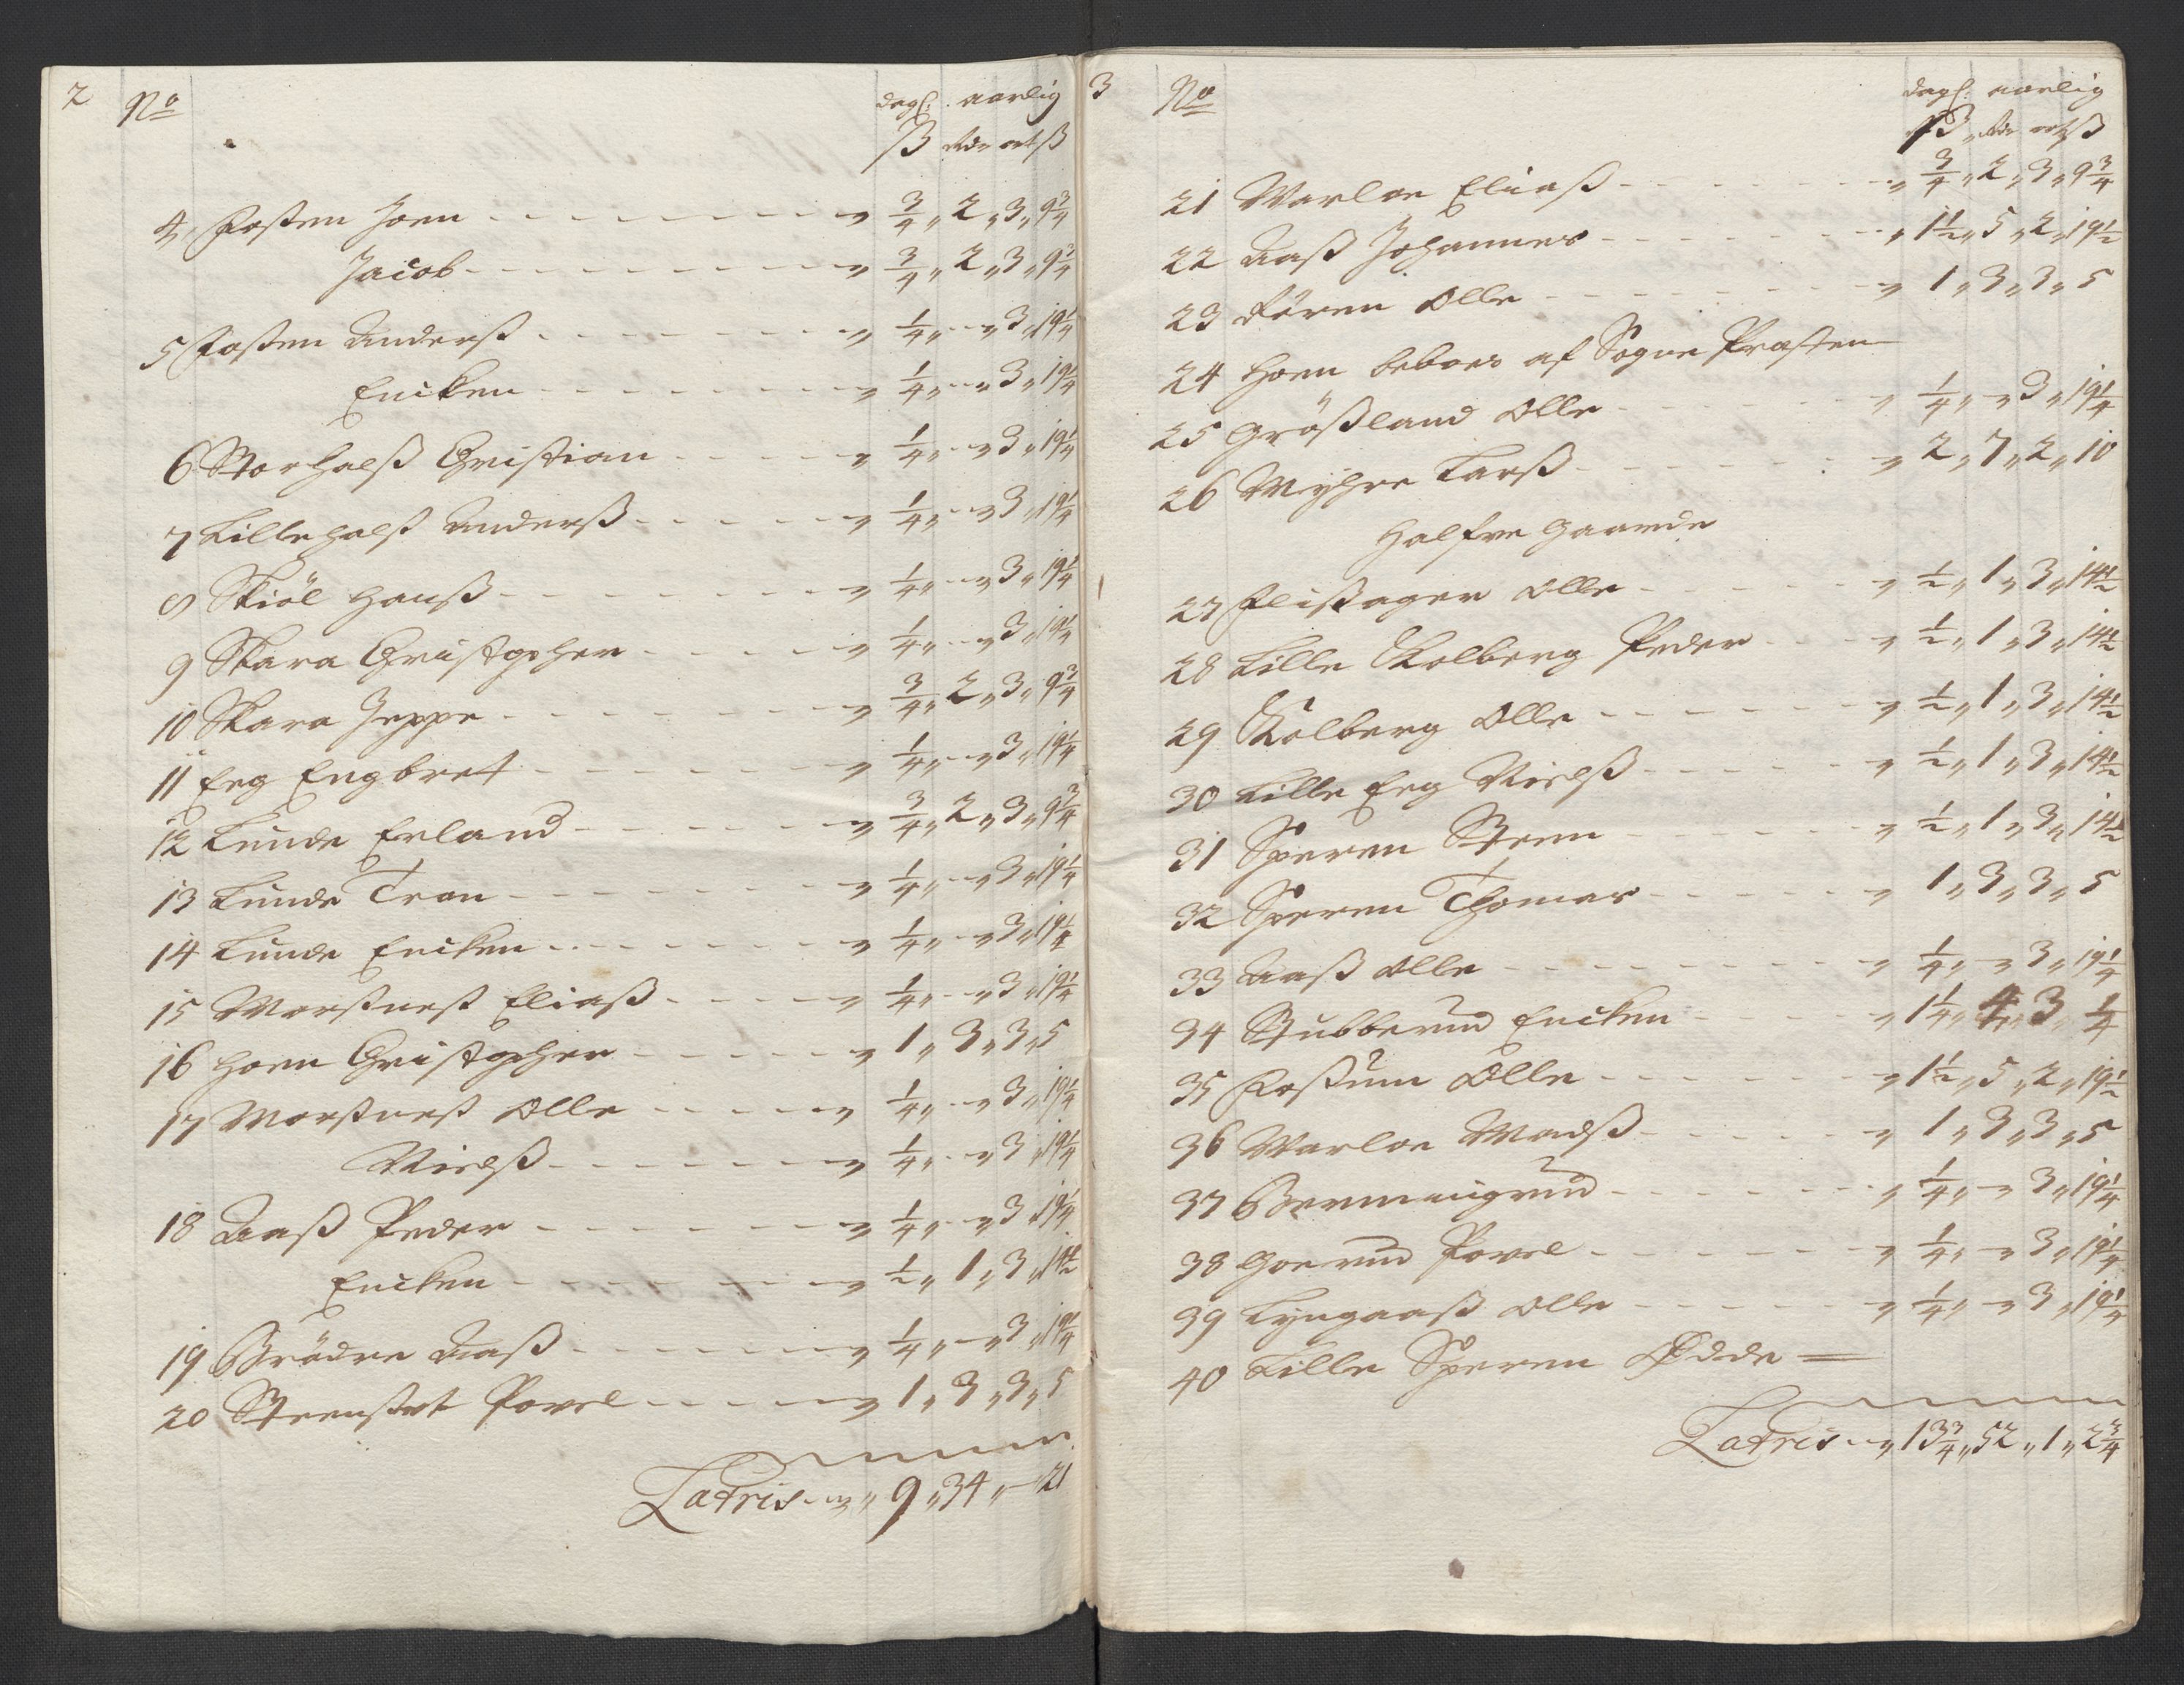 2 No dagl. aarlig
ß Rdr ort ß
4 Foßen Joen - - - 3/4 „ 2 „ 3 „ 9 3/4
Jacob - - - 3/4 „ 2 „ 3 „ 9 3/4
5 Foßen Anderß - - - 1/4 „ - „ 3 „ 19 1/4
Ericken - - - 1/4 „ - „ 3 „ 19 1/4
6 Storhalß Christian - - - 1/4 „ - „ 3 „ 19 1/4
7 Lillehalß Anderß - - - 1/4 „ - „ 3 „ 19 1/4
8 Skiöl Hanß - - - 1/4 „ - „ 3 „ 19 1/4
9 Skara Christopher - - - 1/4 „ - „ 3 „ 19 1/4
10 Skara Jeppe - - - 3/4 „ 2 „ 3 „ 9 3/4
11 Eeg Engbret - - - 1/4 „ - „ 3 „ 19 1/4
12 Lunde Erland - - - 3/4 „ 2 „ 3 „ 9 3/4
13 Lunde Tron - - - 1/4 „ - „ 3 „ 19 1/4
14 Lunde Ericken - - - 1/4 „ - „ 3 „ 19 1/4
15 Morßneß Eliaß - - - 1/4 „ - „ 3 „ 19 1/4
16 Hoen Christopher - - - 1 „ 3 „ 3 „ 5
17 Morßneß Olle - - - 1/4 „ - „ 3 „ 19 1/4
Nielß - - - 1/4 „ - „ 3 „ 19 1/4
18 Aaß Peder - - - 1/4 „ - „ 3 „ 19 1/4
Ericken - - - 1/2 „ 1 „ 3 „ 14 1/2
19 Brödre Aaß - - - 1/4 „ - „ 3 „ 19 1/4
20 Steenset Povel - - - 1 „ 3 „ 3 „ 5
Latris - - „ 9 „ 34 „ - 21
3 No dagl. aarlig
ß „ Rdr ort ß
21 Varloe Eliaß - - - 3/4 „ 2 „ 3 „ 9 3/4
22 Aaß Johannes - - - 1 1/2 „ 5 „ 2 „ 19 1/2
23 Fören Olle - - - 1 „ 3 „ 3 „ 5
24 Hoen beboes af Sogne Præsten
25 Größland Olle - - - 1/4 „ - „ 3 „ 19 1/4
26 Myhre Larß - - - 2 „ 7 „ 2 „ 10
Halfve Gaarde
27 Flißager Olle - - - 1/2 „ 1 „ 3 „ 14 1/2
28 Lille Kolberg Peder - - - 1/2 „ 1 „ 3 „ 14 1/2
29 Kolberg Olle - - - 1/2 „ 1 „ 3 „ 14 1/2
30 Lille Eeg Nielß - - - 1/2 „ 1 „ 3 „ 14 1/2
31 Speren Steen - - - 1/2 „ 1 „ 3 „ 14 1/2
32 Speren Thomas - - - 1 „ 3 „ 3 „ 5
33 Aaß Olle - - - 1/4 „ - „ 3 „ 19 1/4
34 Stubberud Ericken - - - 1 1/4 „ 4 „ 3 „ 1/4
35 Foßum Olle - - - 1 1/2 „ 5 „ 2 „ 19 1/2
36 Varloe Madß - - - 1 „ 3 „ 3 „ 5
37 Bermingrud - - - 1/4 „ - „ 3 „ 19 1/4
38 Goerud Povel - - - 1/4 „ - „ 3 „ 19 1/4
39 Lyngaaß Olle - - - 1/4 „ - „ 3 „ 19 1/4
40 Lille Speren Ødde
Latris - „ 13 3/4 „ 52 „ 1 „ 2 3/4